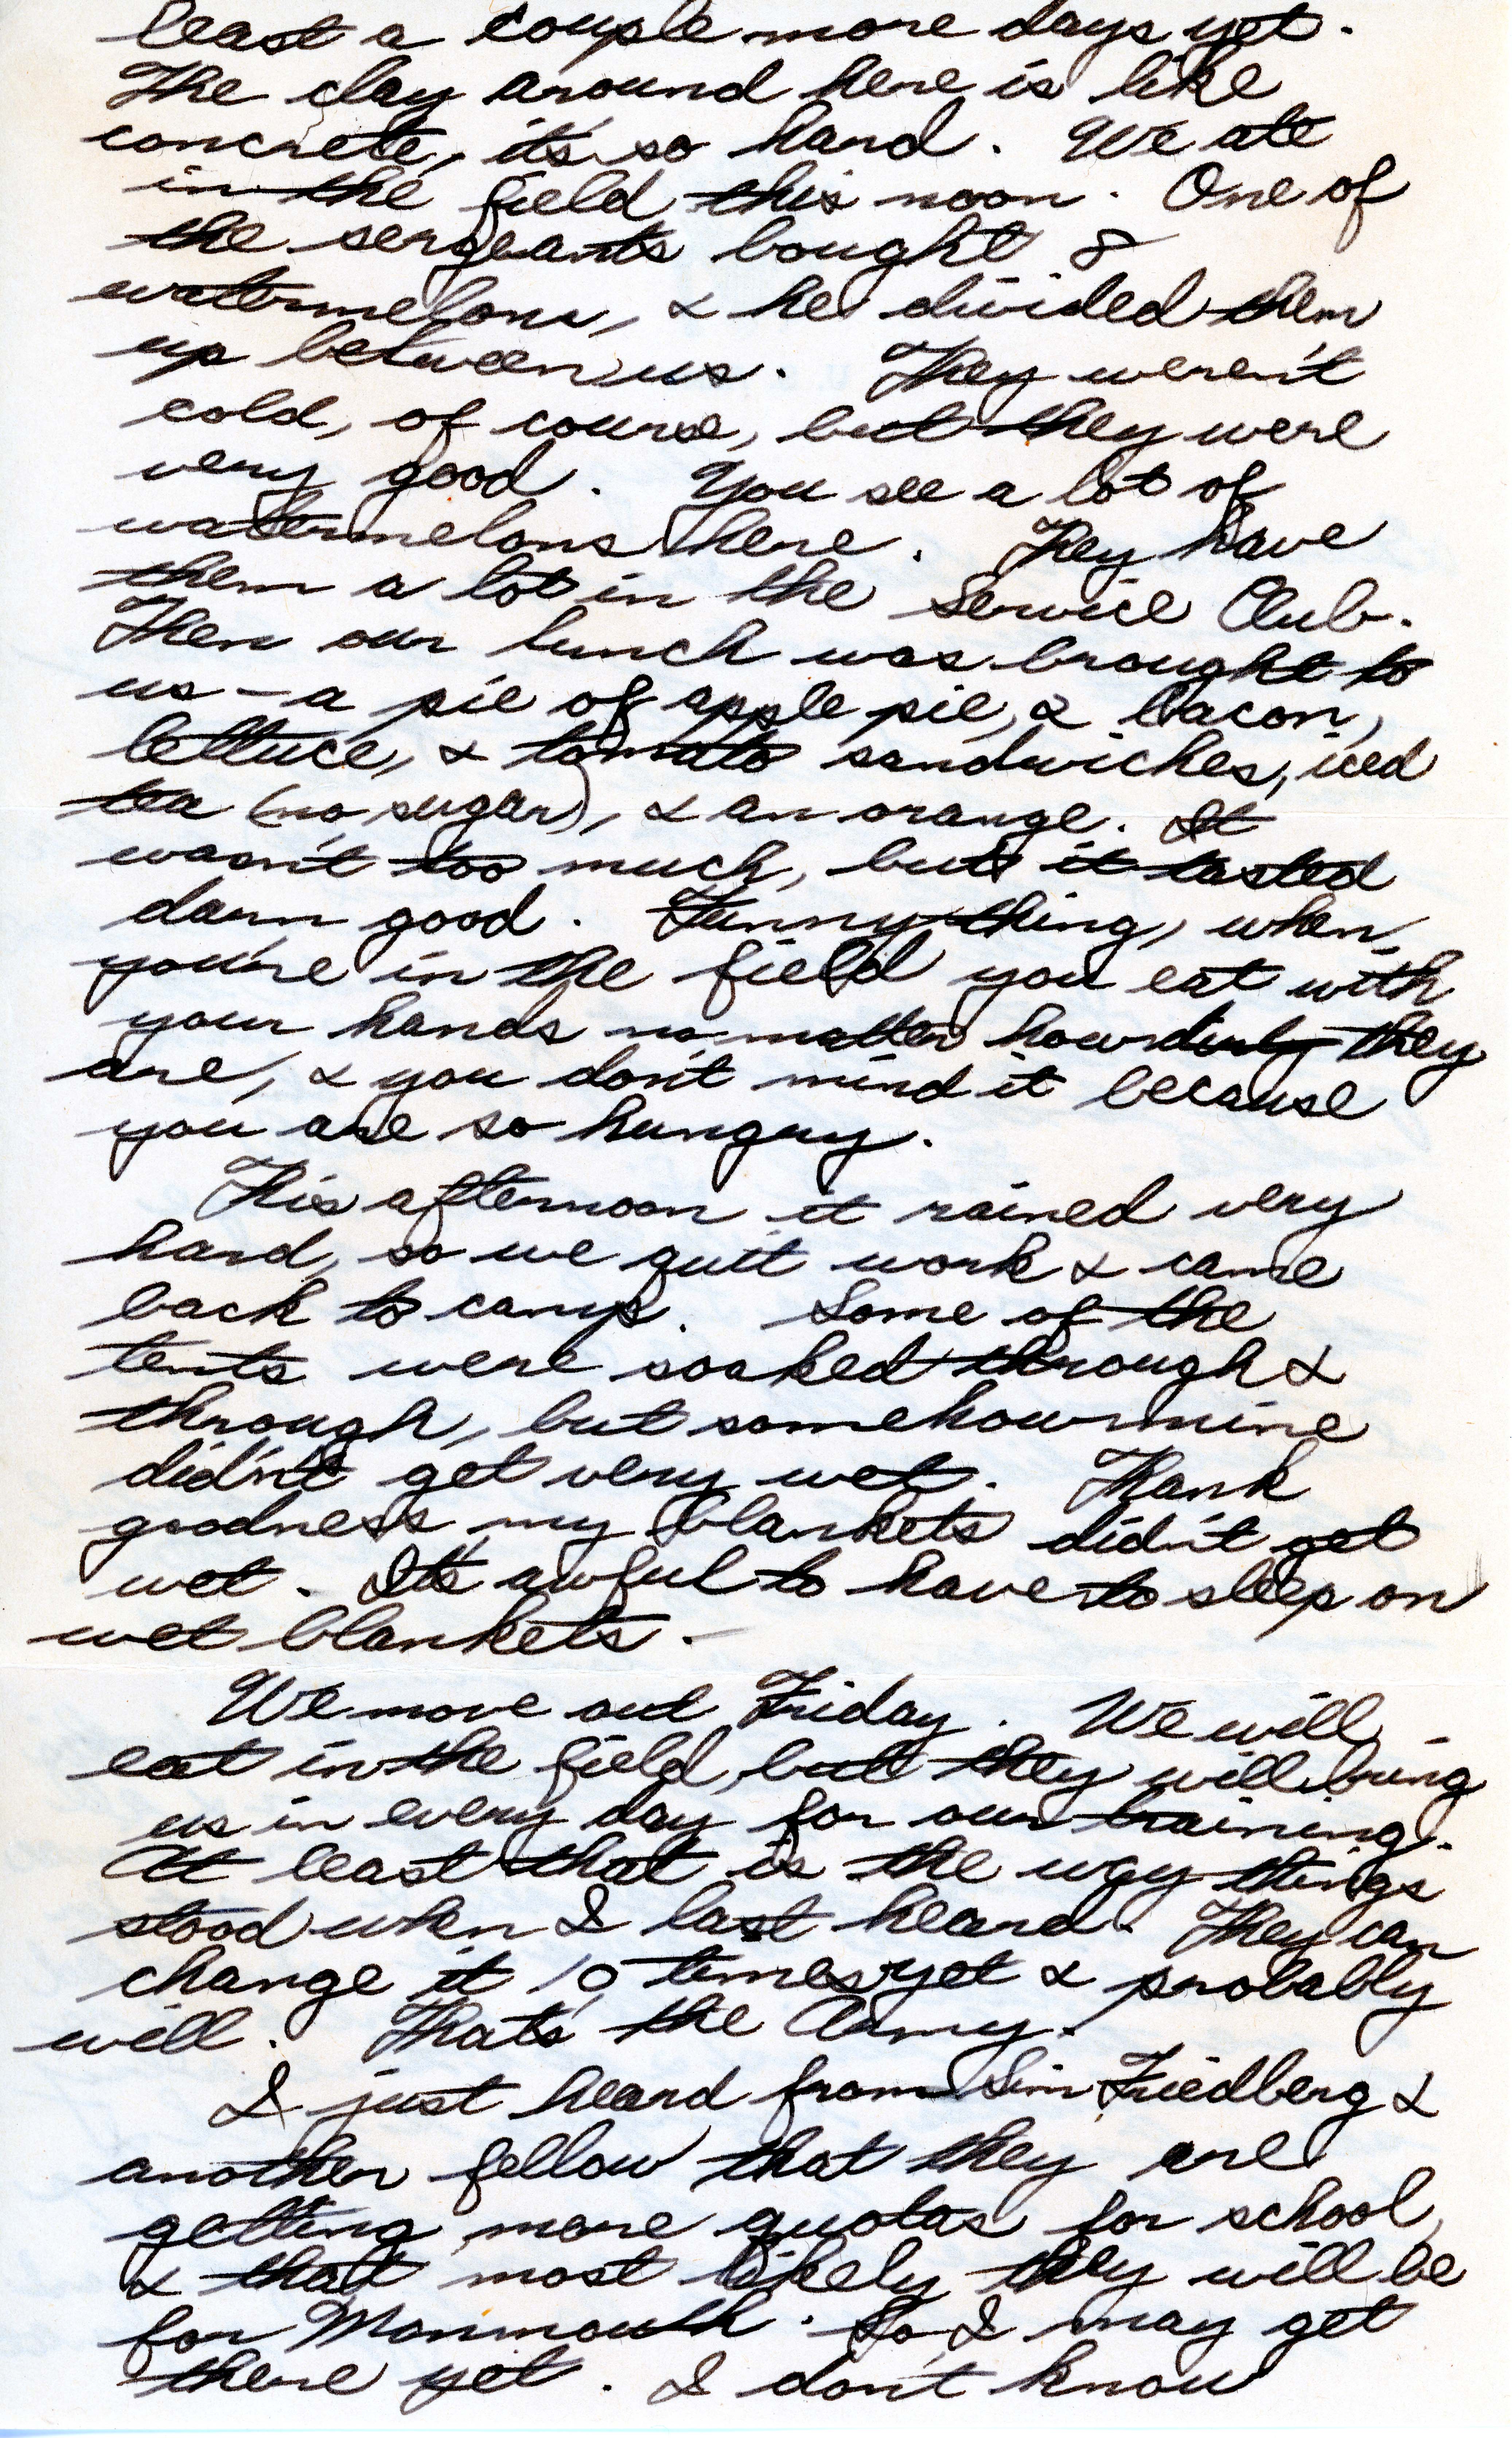 least a couple more days yet.
The clay around here is like
concrete, it's so hard. We ate
in the field this noon. One of
the sergeants bought 8
watermelons, & he divided them
up between us. They weren't
cold, of course, but they were
very good. You see a lot of
watermelons here. They have
them a lot in the Service Club.
Then our lunch was brought to
us - a pie of apple pie, & bacon,
lettuce, & tomato sandwiches, iced
tea (no sugar), & an orange. It
wasn't too much, but it tasted
darn good. Funny thing, when
you're in the field you eat with
your hands no matter how dirty they
are, & you don't mind it because
you are so hungry.
This afternoon it rained very
hard, so we quit work & came
back to camp. Some of the
tents were soaked through &
through, but somehow mine
didn't get very wet. Thank
goodness my blankets didn't get
wet. It's awful to have to sleep on
wet blankets.
We move out Friday. We will
eat in the field, but they will bring
us in every day for our training.
At least that is the way things
stood when I last heard. They can
change it 10 times yet & probably
will. That's the Army.
I just heard from Sim Friedberg &
another fellow that they are
getting more quotas for school,
& that most likely they will be
for Monmouth. So, I may get
there yet. I don't know